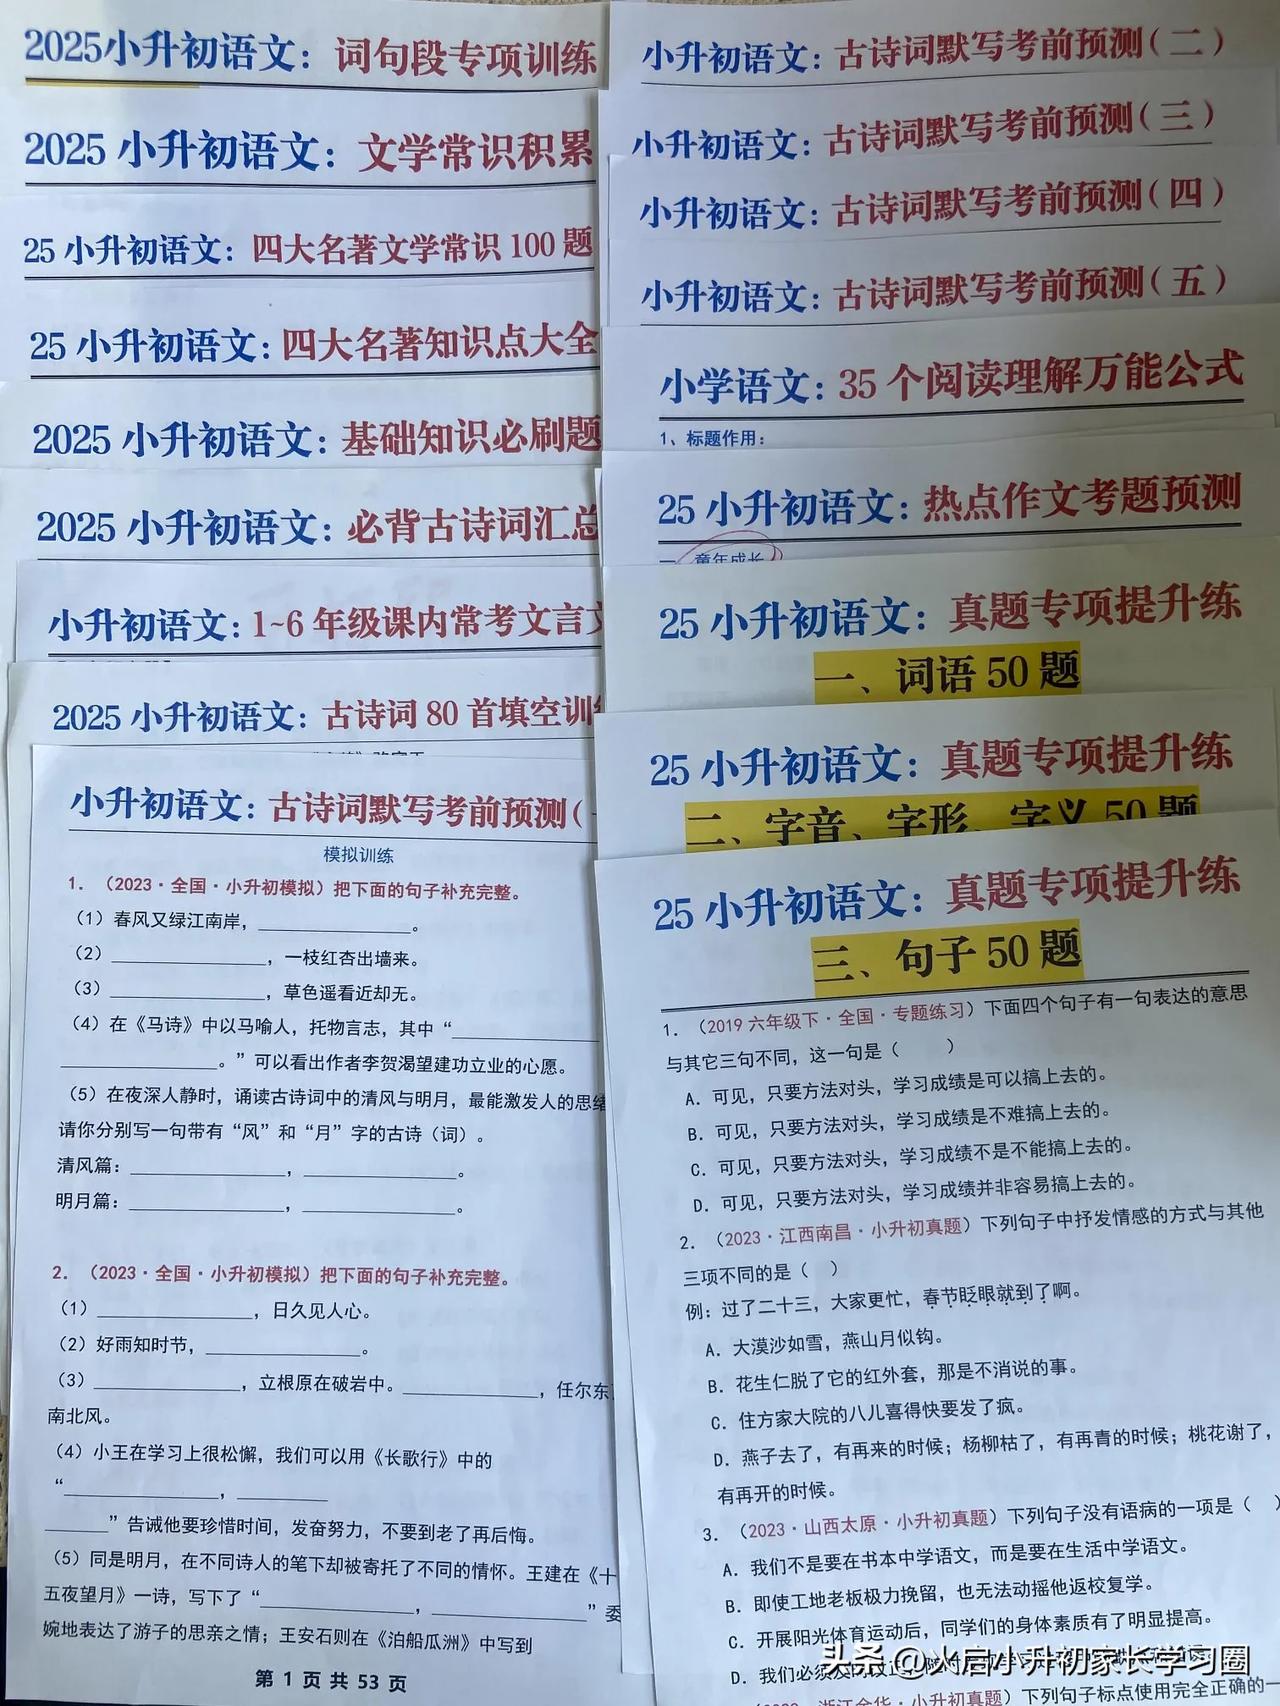 2025小升初语文：词句段专项训练
2025 小升初语文：文学常识积累
25 小升初语文：四大名著文学常识 100 题
25 小升初语文：四大名著知识点大全
2025 小升初语文：基础知识必刷题
2025 小升初语文：必背古诗词汇总
小升初语文：1~6 年级课内常考文言文
2025 小升初语文：古诗词 80 首填空训
小升初语文：古诗词默写考前预测（一
模拟训练
1. （2023·全国·小升初模拟）把下面的句子补充完整。
（1）春风又绿江南岸，______________。
（2）______________，一枝红杏出墙来。
（3）______________，草色遥看近却无。
（4）在《马诗》中以马喻人，托物言志，其中“______________
______________。”可以看出作者李贺渴望建功立业的心愿。
（5）在夜深人静时，诵读古诗词中的清风与明月，最能激发人的思绪
请你分别写一句带有“风”和“月”字的古诗（词）。
清风篇：______________，______________。
明月篇：______________，______________。
2. （2023·全国·小升初模拟）把下面的句子补充完整。
（1）______________，日久见人心。
（2）好雨知时节，______________。
（3）______________，立根原在破岩中。______________，任尔东
南北风。
（4）小王在学习上很松懈，我们可以用《长歌行》中的
“______________，________
______”告诫他要珍惜时间，发奋努力，不要到老了再后悔。
（5）同是明月，在不同诗人的笔下却被寄托了不同的情怀。王建在《十
五夜望月》一诗，写下了“______________，______________”委
婉地表达了游子的思亲之情；王安石则在《泊船瓜洲》中写到
第 1 页 共 53 页
小升初语文：古诗词默写考前预测（二）
小升初语文：古诗词默写考前预测（三）
小升初语文：古诗词默写考前预测（四）
小升初语文：古诗词默写考前预测（五）
小学语文：35 个阅读理解万能公式
1、标题作用：
25 小升初语文：热点作文考题预测
一、童年成长
25 小升初语文：真题专项提升练
一、词语 50 题
25 小升初语文：真题专项提升练
二、字音、字形、字义 50 题
25 小升初语文：真题专项提升练
三、句子 50 题
1. （2019 六年级下·全国·专题练习）下面四个句子有一句表达的意思
与其它三句不同，这一句是（　　）
A. 可见，只要方法对头，学习成绩是可以搞上去的。
B. 可见，只要方法对头，学习成绩是不难搞上去的。
C. 可见，只要方法对头，学习成绩不是不能搞上去的。
D. 可见，只要方法对头，学习成绩并非容易搞上去的。
2. （2023·江西南昌·小升初真题）下列句子中抒发情感的方式与其他
三项不同的是（　）
例：过了二十三，大家更忙，春节眨眼就到了啊。
A. 大漠沙如雪，燕山月似钩。
B. 花生仁脱了它的红外套，那是不消说的事。
C. 住方家大院的八儿喜得快要发了疯。
D. 燕子去了，有再来的时候；杨柳枯了，有再青的时候；桃花谢了，
有再开的时候。
3. （2023·山西太原·小升初真题）下列句子没有语病的一项是（　）
A. 我们不是要在书本中学语文，而是要在生活中学语文。
B. 即使工地老板极力挽留，也无法动摇他返校复学。
C. 开展阳光体育运动后，同学们的身体素质有了明显提高。
D. 我们必须
浙江金华·小升初真题）下列句子标点使用完全正确的一
头条 @火启小升初家长学习圈